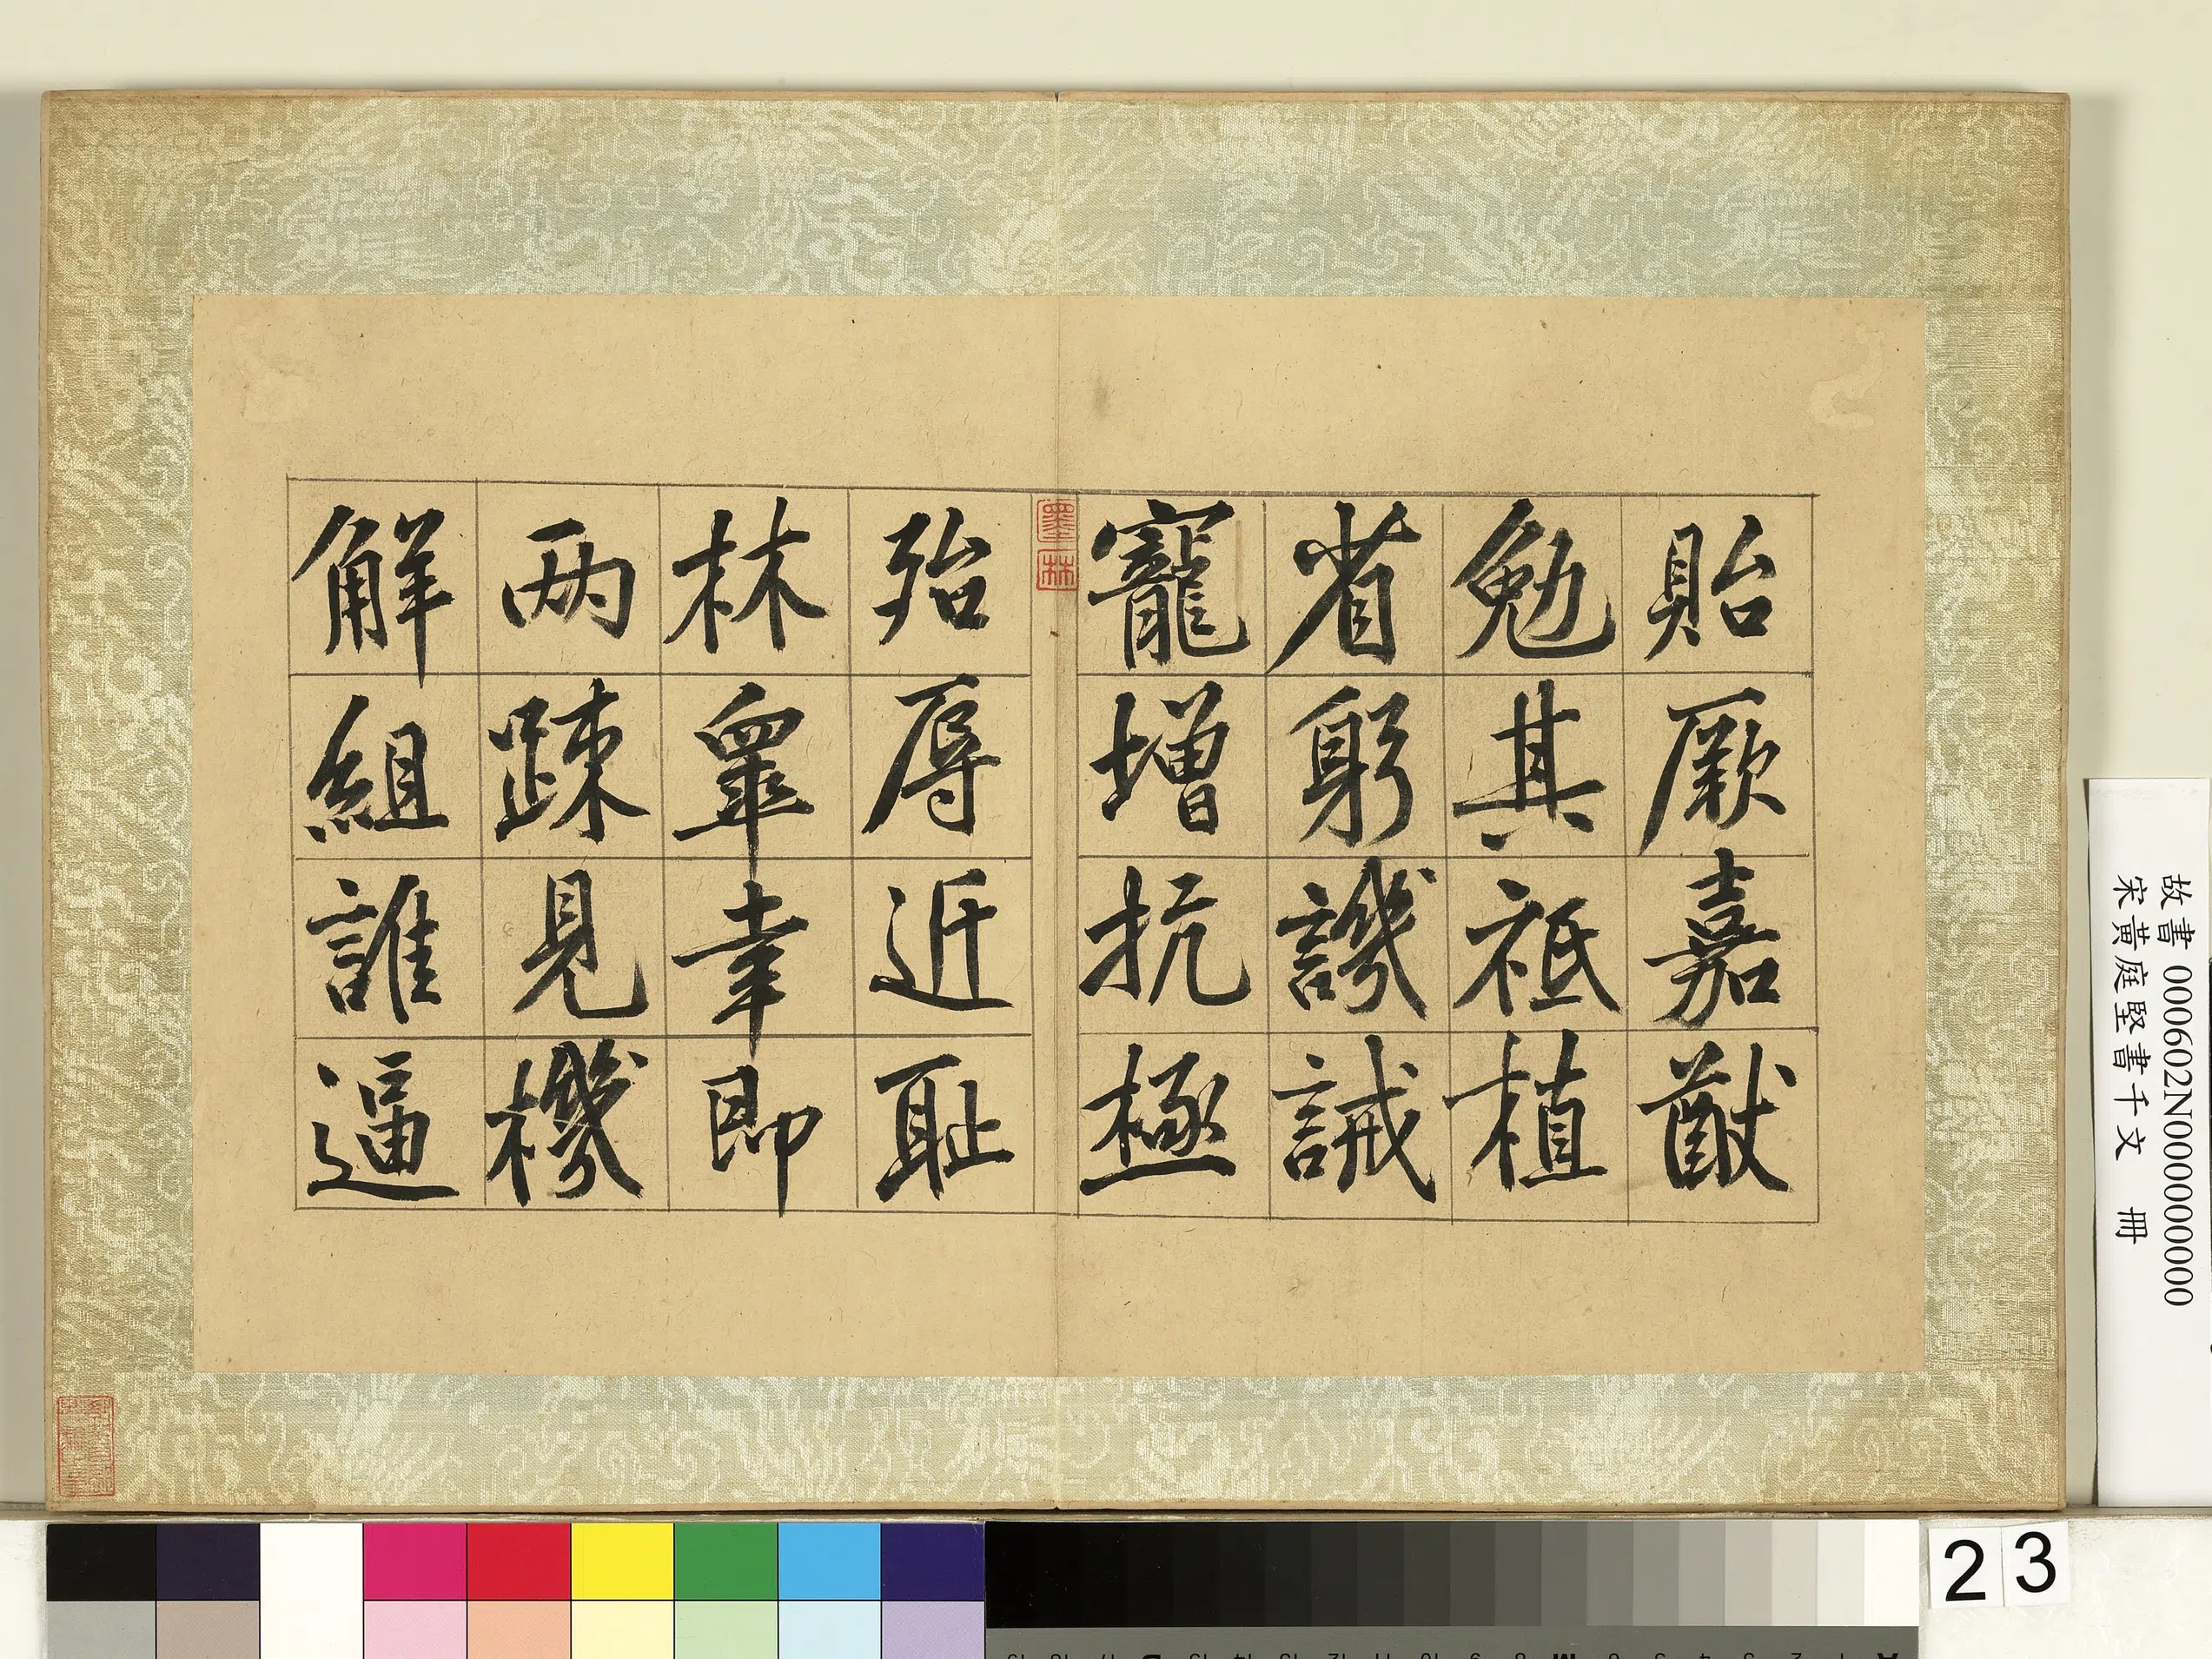 貽厥嘉猷
勉其祗植
省躬譏誡
寵增抗極
殆辱近耻
林睾幸即
兩疎見機
解組誰逼
墨林
故書 000602N000000000
宋黃庭堅書千文 冊
23